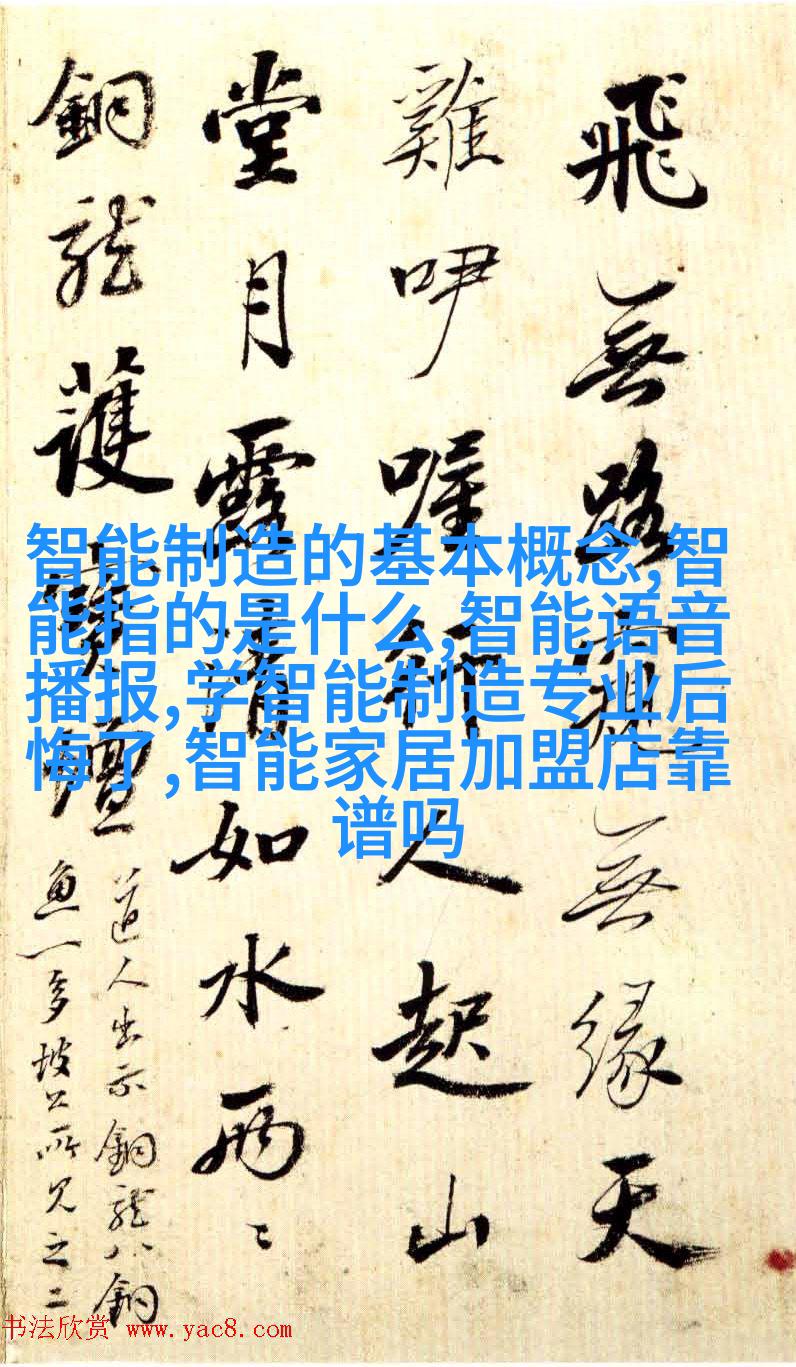 飛無路窺無緣天
雞咿喔行人起山
堂月露清如水兩〻
銅龍護寶壇
道人出示銅龍八銅
魚一多坡公所見之二
智能制造的基本概念,智
能指的是什么,智能语音
播报,学智能制造专业后
悔了,智能家居加盟店靠
谱吗
书法欣赏 www.yac8.com